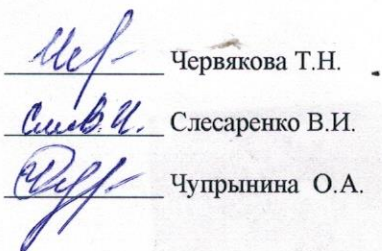 Червякова Т.Н.
Слесаренко В.И.
Чупрынина О.А.